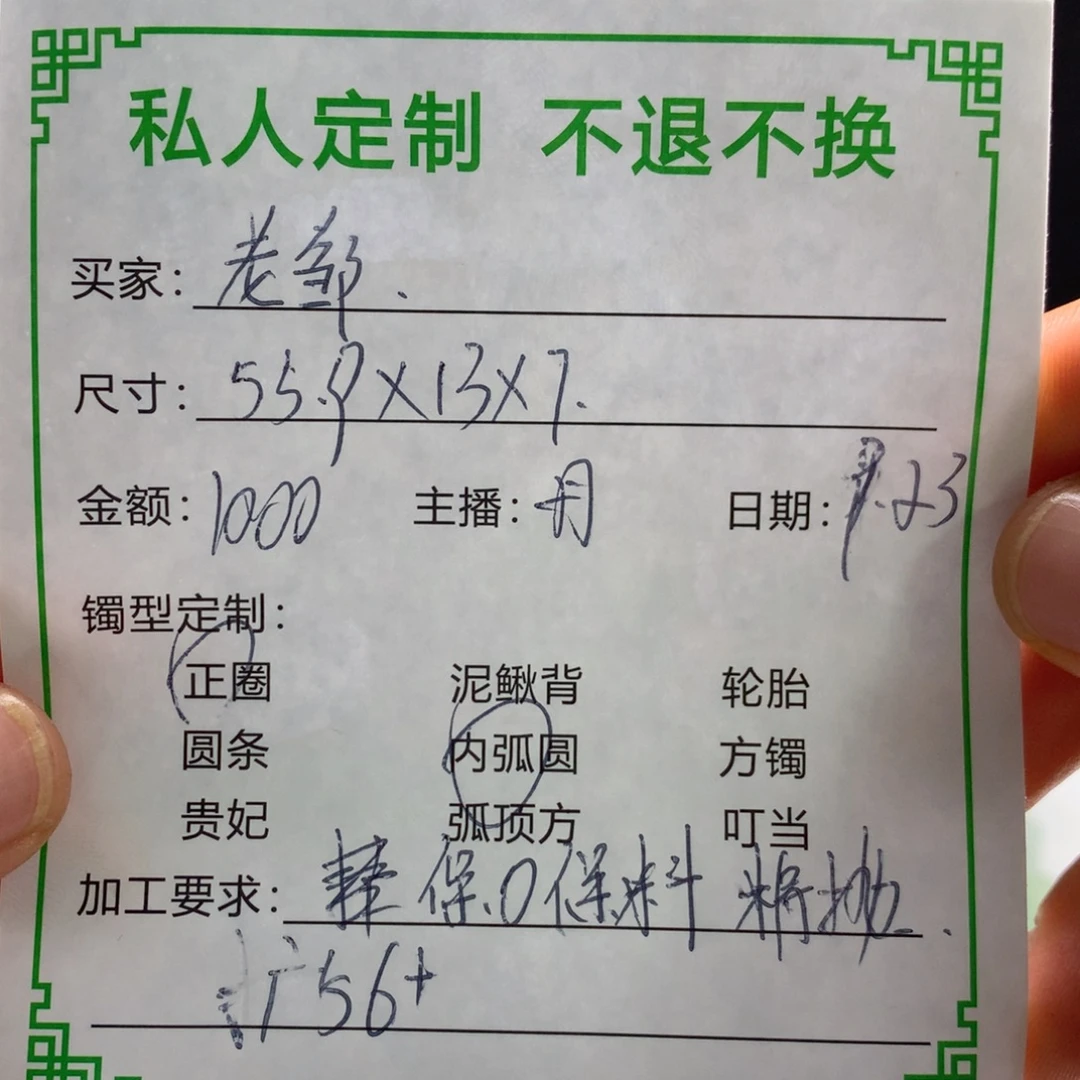 私人定制 不退不换
买家：老邹.
尺寸：55.9×13×7.
金额：1000 主播：月 日期：9.23
镯型定制：
正圈 泥鳅背 轮胎
圆条 内弧圆 方镯
贵妃 弧顶方 叮当
加工要求： 保.0保料 精抛.
56+